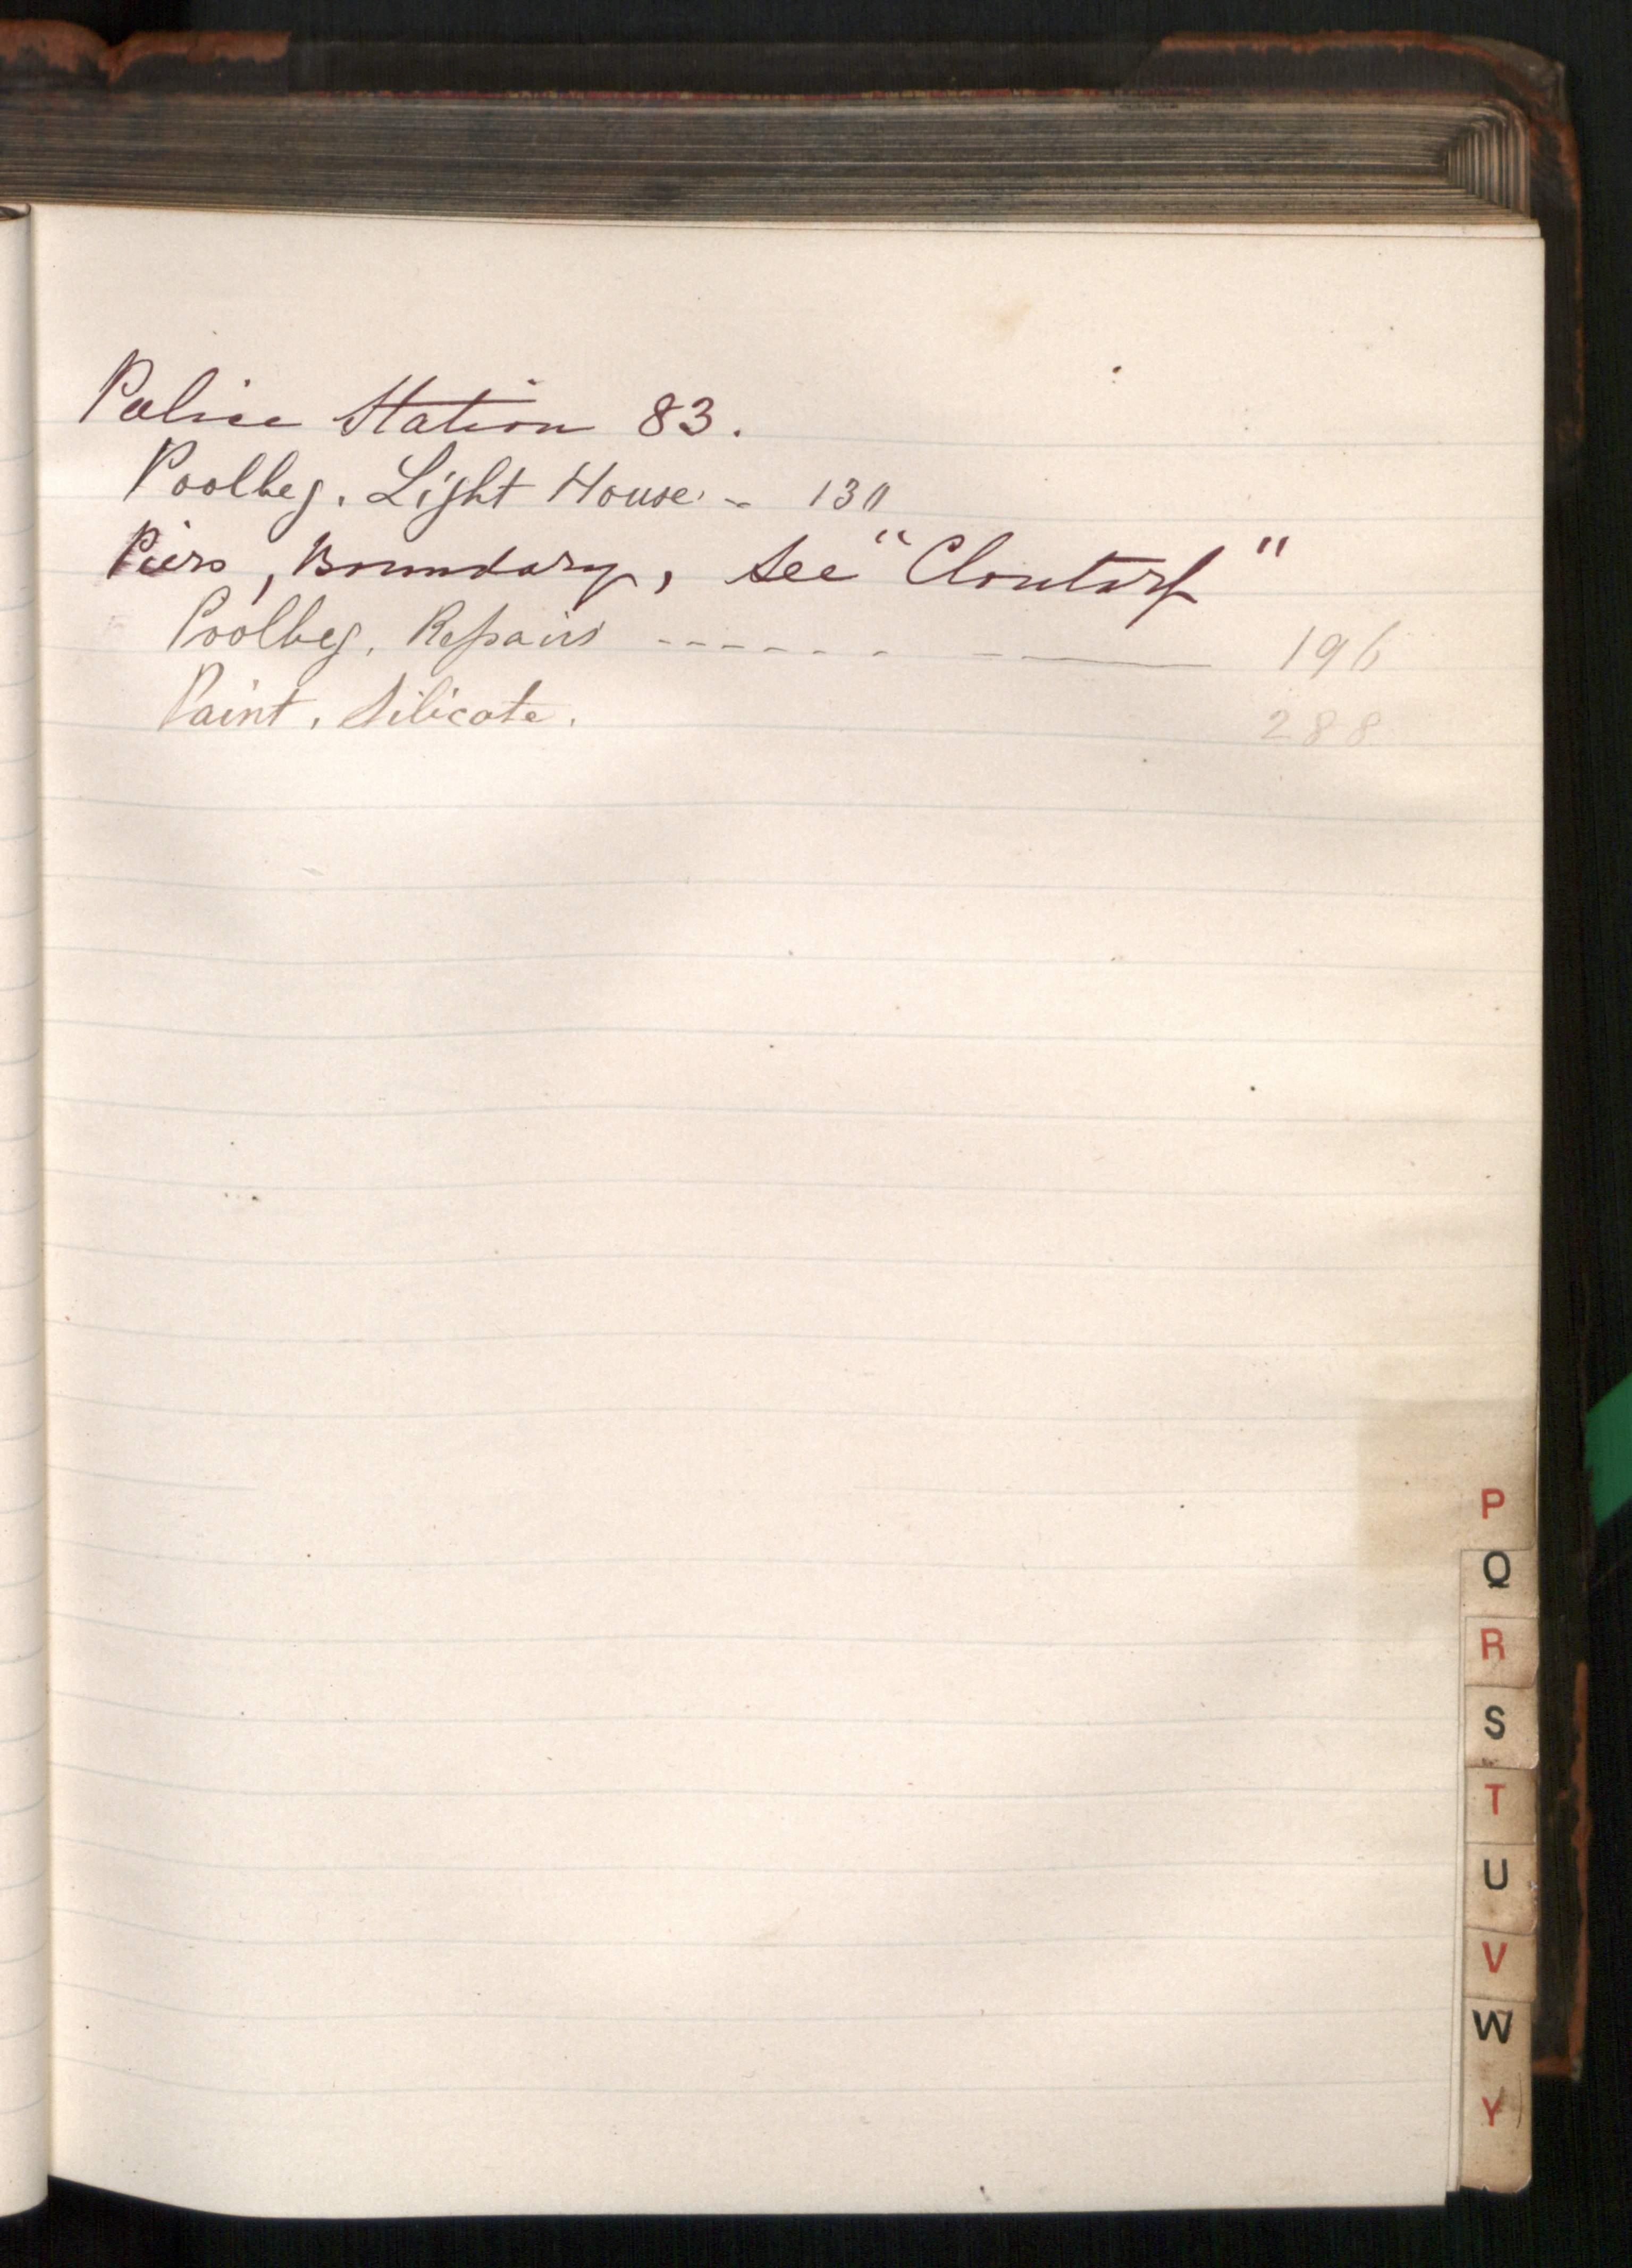 Police Station 83.
Poolbeg. Light House - 130
Piers, Boundary, See "Clontarf"
Poolbeg, Repairs ------ - ——— 196
Paint, Silicate. 288
P
Q
R
S
T
U
V
W
Y